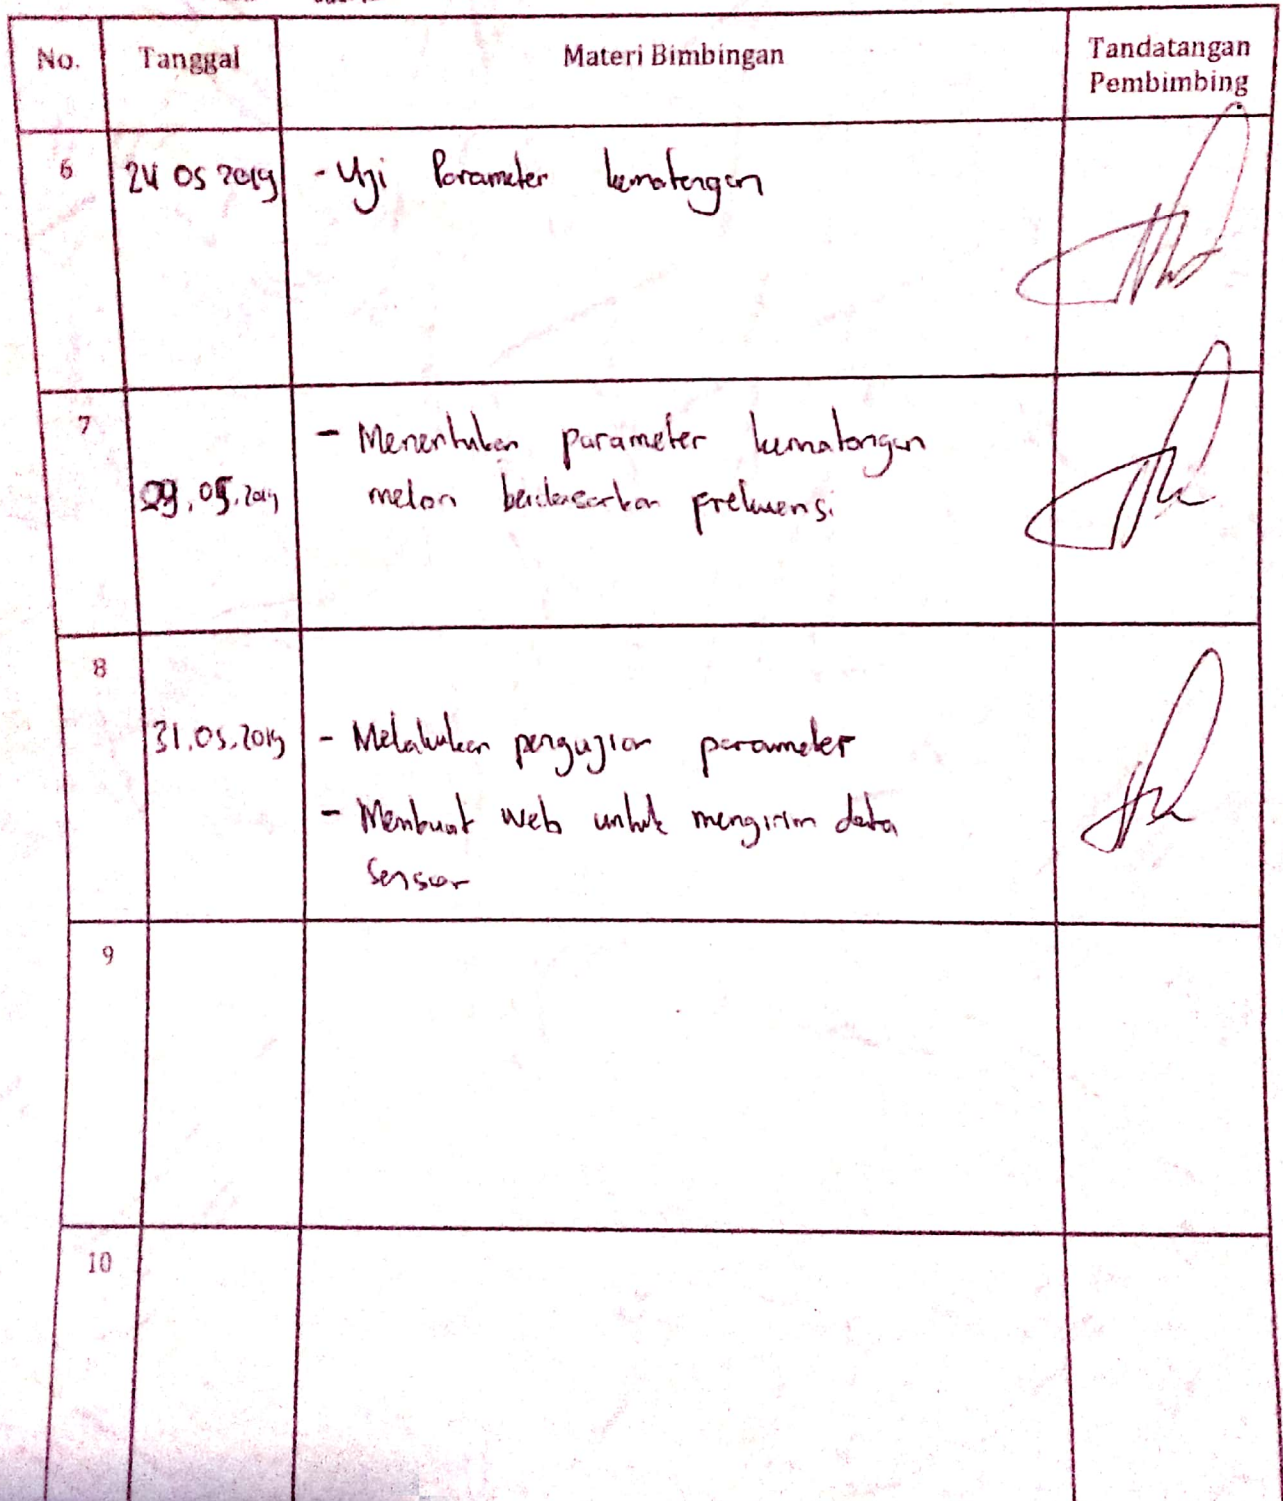 No. Tanggal Materi Bimbingan Tandatangan
Pembimbing
6 24 05 2019 - Uji Parameter kematangan
7
- Menentukan parameter kematangan
09.05.2019 melon berdasarkan frekuensi
8
31.05.2019 - Melakukan pengujian parameter
- Membuat web untuk mengirim data
sensor
9
10